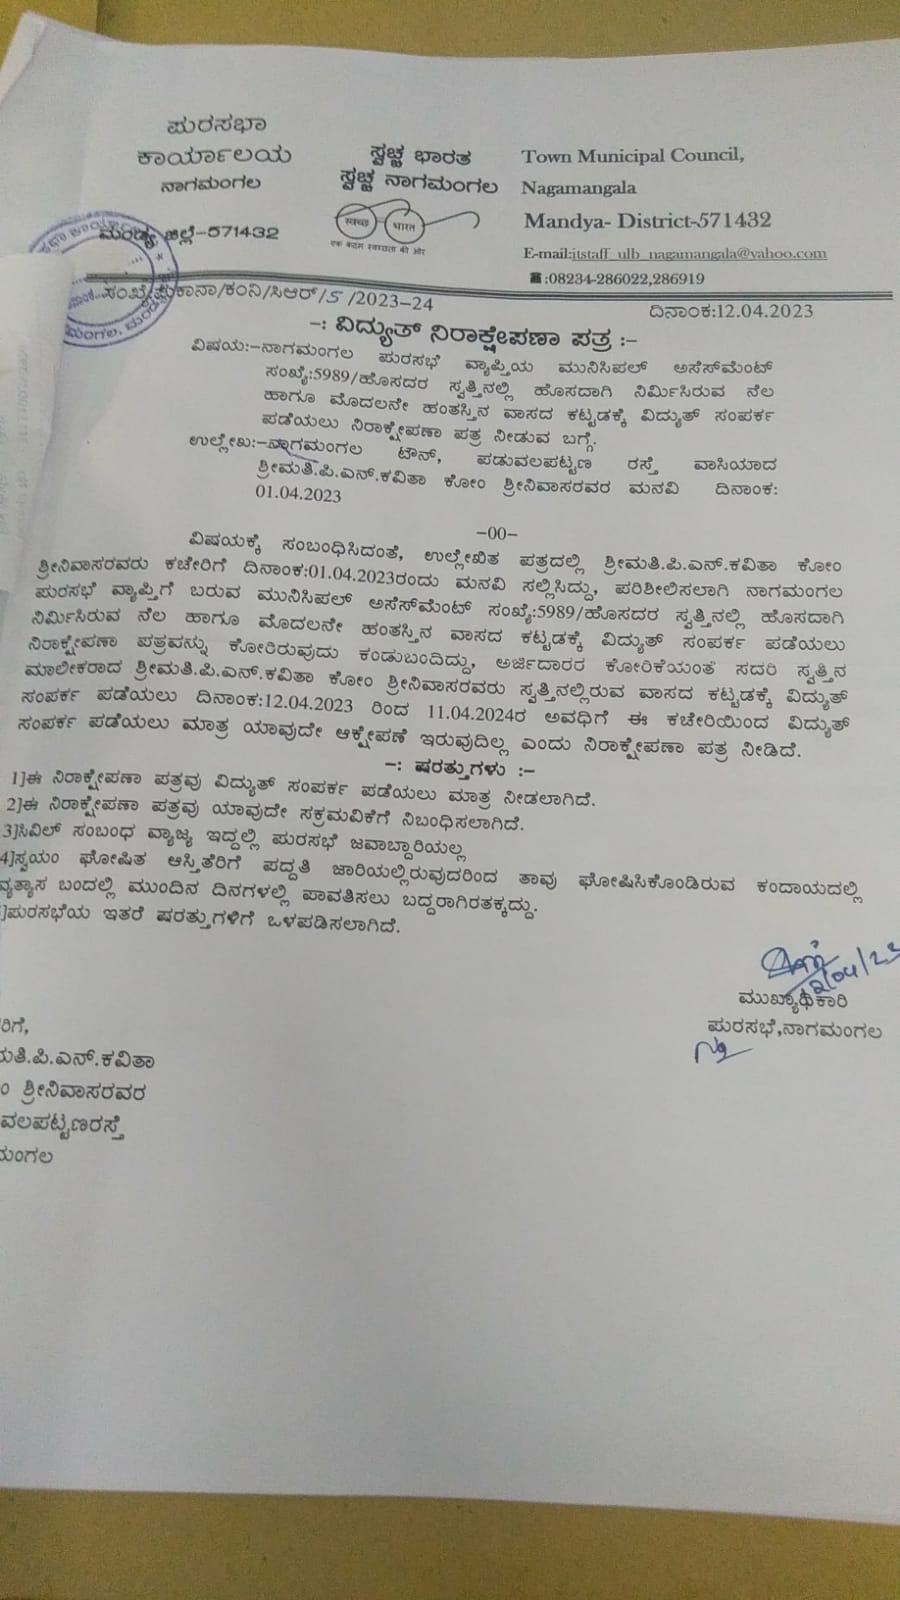 ಪುರಸಭಾ
ಕಾರ್ಯಾಲಯ
ನಾಗಮಂಗಲ
ಮಂಡ್ಯ ಜಿಲ್ಲೆ-571432
ಸ್ವಚ್ಛ ಭಾರತ
ಸ್ವಚ್ಛ ನಾಗಮಂಗಲ
स्वच्छ भारत
एक कदम स्वच्छता की ओर
Town Municipal Council,
Nagamangala
Mandya- District-571432
E-mail:itstaff_ulb_nagamangala@yahoo.com
☎:08234-286022,286919
ಸಂಖ್ಯೆ:ಪುಕಾನಾ/ಕಂನಿ/ಸಿಆರ್/5 /2023-24
ದಿನಾಂಕ:12.04.2023
-: ವಿದ್ಯುತ್ ನಿರಾಕ್ಷೇಪಣಾ ಪತ್ರ :-
ವಿಷಯ:-ನಾಗಮಂಗಲ ಪುರಸಭೆ ವ್ಯಾಪ್ತಿಯ ಮುನಿಸಿಪಲ್ ಅಸೆಸ್‌ಮೆಂಟ್
ಸಂಖ್ಯೆ:5989/ಹೊಸದರ ಸ್ವತ್ತಿನಲ್ಲಿ ಹೊಸದಾಗಿ ನಿರ್ಮಿಸಿರುವ ನೆಲ
ಹಾಗೂ ಮೊದಲನೇ ಹಂತಸ್ತಿನ ವಾಸದ ಕಟ್ಟಡಕ್ಕೆ ವಿದ್ಯುತ್ ಸಂಪರ್ಕ
ಪಡೆಯಲು ನಿರಾಕ್ಷೇಪಣಾ ಪತ್ರ ನೀಡುವ ಬಗ್ಗೆ.
ಉಲ್ಲೇಖ:-ನಾಗಮಂಗಲ ಟೌನ್, ಪಡುವಲಪಟ್ಟಣ ರಸ್ತೆ ವಾಸಿಯಾದ
ಶ್ರೀಮತಿ.ಪಿ.ಎನ್.ಕವಿತಾ ಕೋಂ ಶ್ರೀನಿವಾಸರವರ ಮನವಿ ದಿನಾಂಕ:
01.04.2023
-00-
ವಿಷಯಕ್ಕೆ ಸಂಬಂಧಿಸಿದಂತೆ, ಉಲ್ಲೇಖಿತ ಪತ್ರದಲ್ಲಿ ಶ್ರೀಮತಿ.ಪಿ.ಎನ್.ಕವಿತಾ ಕೋಂ
ಶ್ರೀನಿವಾಸರವರು ಕಚೇರಿಗೆ ದಿನಾಂಕ:01.04.2023ರಂದು ಮನವಿ ಸಲ್ಲಿಸಿದ್ದು, ಪರಿಶೀಲಿಸಲಾಗಿ ನಾಗಮಂಗಲ
ಪುರಸಭೆ ವ್ಯಾಪ್ತಿಗೆ ಬರುವ ಮುನಿಸಿಪಲ್ ಅಸೆಸ್‌ಮೆಂಟ್ ಸಂಖ್ಯೆ:5989/ಹೊಸದರ ಸ್ವತ್ತಿನಲ್ಲಿ ಹೊಸದಾಗಿ
ನಿರ್ಮಿಸಿರುವ ನೆಲ ಹಾಗೂ ಮೊದಲನೇ ಹಂತಸ್ತಿನ ವಾಸದ ಕಟ್ಟಡಕ್ಕೆ ವಿದ್ಯುತ್ ಸಂಪರ್ಕ ಪಡೆಯಲು
ನಿರಾಕ್ಷೇಪಣಾ ಪತ್ರವನ್ನು ಕೋರಿರುವುದು ಕಂಡುಬಂದಿದ್ದು, ಅರ್ಜಿದಾರರ ಕೋರಿಕೆಯಂತೆ ಸದರಿ ಸ್ವತ್ತಿನ
ಮಾಲೀಕರಾದ ಶ್ರೀಮತಿ.ಪಿ.ಎನ್.ಕವಿತಾ ಕೋಂ ಶ್ರೀನಿವಾಸರವರು ಸ್ವತ್ತಿನಲ್ಲಿರುವ ವಾಸದ ಕಟ್ಟಡಕ್ಕೆ ವಿದ್ಯುತ್
ಸಂಪರ್ಕ ಪಡೆಯಲು ದಿನಾಂಕ:12.04.2023 ರಿಂದ 11.04.2024ರ ಅವಧಿಗೆ ಈ ಕಚೇರಿಯಿಂದ ವಿದ್ಯುತ್
ಸಂಪರ್ಕ ಪಡೆಯಲು ಮಾತ್ರ ಯಾವುದೇ ಆಕ್ಷೇಪಣೆ ಇರುವುದಿಲ್ಲ ಎಂದು ನಿರಾಕ್ಷೇಪಣಾ ಪತ್ರ ನೀಡಿದೆ.
-: ಷರತ್ತುಗಳು :-
1]ಈ ನಿರಾಕ್ಷೇಪಣಾ ಪತ್ರವು ವಿದ್ಯುತ್ ಸಂಪರ್ಕ ಪಡೆಯಲು ಮಾತ್ರ ನೀಡಲಾಗಿದೆ.
2]ಈ ನಿರಾಕ್ಷೇಪಣಾ ಪತ್ರವು ಯಾವುದೇ ಸಕ್ರಮವಿಕೆಗೆ ನಿಬಂಧಿಸಲಾಗಿದೆ.
3]ಸಿವಿಲ್ ಸಂಬಂಧ ವ್ಯಾಜ್ಯ ಇದ್ದಲ್ಲಿ ಪುರಸಭೆ ಜವಾಬ್ದಾರಿಯಲ್ಲ
4]ಸ್ವಯಂ ಘೋಷಿತ ಆಸ್ತಿತೆರಿಗೆ ಪದ್ದತಿ ಜಾರಿಯಲ್ಲಿರುವುದರಿಂದ ತಾವು ಘೋಷಿಸಿಕೊಂಡಿರುವ ಕಂದಾಯದಲ್ಲಿ
ವ್ಯತ್ಯಾಸ ಬಂದಲ್ಲಿ ಮುಂದಿನ ದಿನಗಳಲ್ಲಿ ಪಾವತಿಸಲು ಬದ್ದರಾಗಿರತಕ್ಕದ್ದು.
]ಪುರಸಭೆಯ ಇತರೆ ಷರತ್ತುಗಳಿಗೆ ಒಳಪಡಿಸಲಾಗಿದೆ.
12/04/23
ಮುಖ್ಯಾಧಿಕಾರಿ
ಪುರಸಭೆ,ನಾಗಮಂಗಲ
ರಿಗೆ,
ಮತಿ.ಪಿ.ಎನ್.ಕವಿತಾ
ಂ ಶ್ರೀನಿವಾಸರವರ
ವಲಪಟ್ಟಣರಸ್ತೆ
ಮಂಗಲ